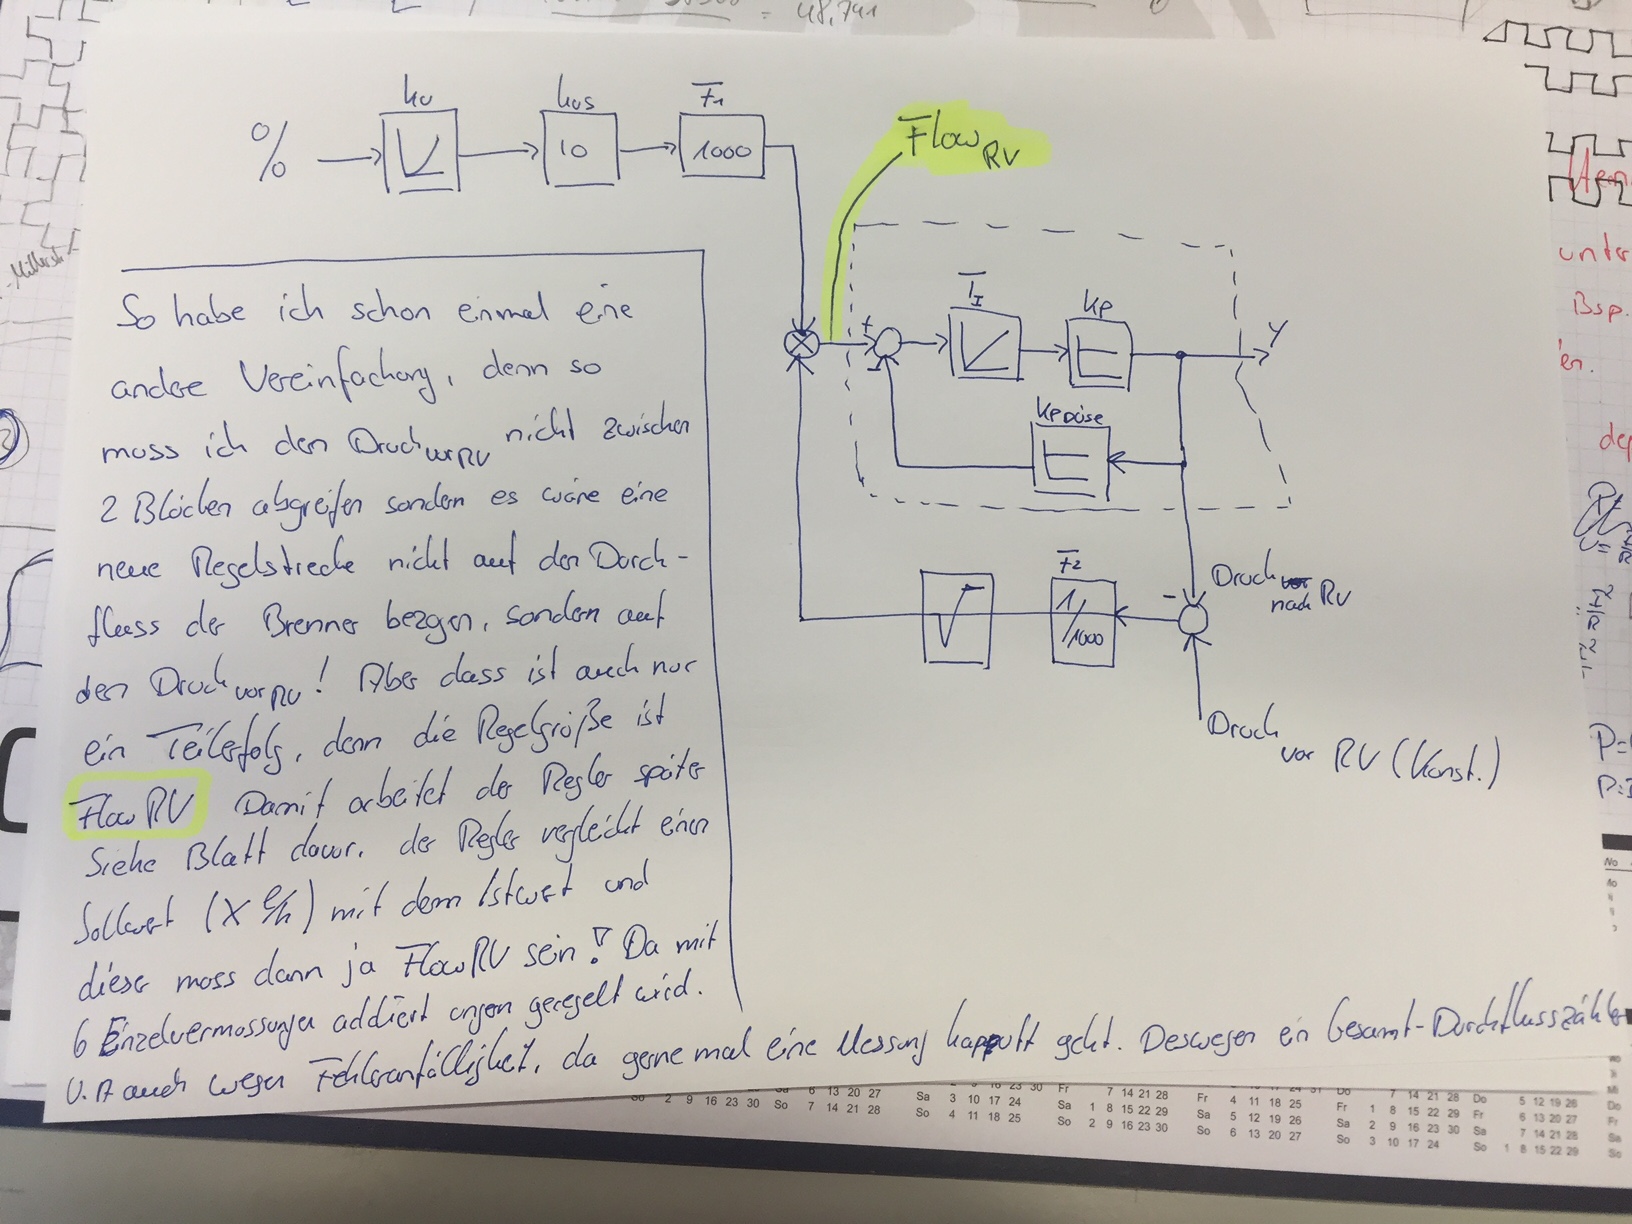 = 48,741
% kv kvs F1
10 1000
Flow RV
TI kp
+
-
Y
kpDüse
F2
1/1000
-
Druck nach RV
Druck vor RV (Konst.)
So habe ich schon einmal eine
andere Vereinfachung, denn so
muss ich den Druck vor RV nicht zwischen
2 Blöcken abgreifen sondern es wäre eine
neue Regelstrecke nicht auf den Durch-
fluss der Brenner bezogen, sondern auf
den Druck vor RV! Aber dass ist auch nur
ein Teilerfolg, denn die Regelgröße ist
Flow RV Damit arbeitet der Regler später
Siehe Blatt davor. der Regler vergleicht einen
Sollwert (X l/h) mit dem Istwert und
dieser muss dann ja Flow RV sein! Da mit
6 Einzelvermessungen addiert ungern geregelt wird.
U.A auch wegen Fehleranfälligkeit, da gerne mal eine Messung kapputt geht. Deswegen ein Gesamt-Durchflusszähler
unter
Bsp.
en.
2 9 16 23 30 So 7 14 21 28
6 13 20 27
Sa 3 10 17 24
So 4 11 18 25
Fr 7 14 21 28
Sa 1 8 15 22 29
So 2 9 16 23 30
Fr 4 11 18 25
Sa 5 12 19 26
So 6 13 20 27
Do 7 14 21 28
Fr 1 8 15 22 29
Sa 2 9 16 23 30
So 3 10 17 24
Do 5 12 19 26
Fr 6 13 20 27
Sa 7 14 21 28
So 1 8 15 22 29